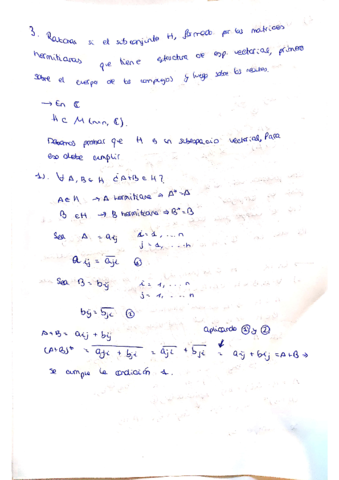 3. Razonar si el subconjunto H, formado por las matrices
hermitianas que tiene estructura de esp. vectorial, primero
sobre el cuerpo de los complejos y luego sobre los reales.
→ En ℂ
H ⊂ M(n×n, ℂ).
Debemos probar que H es un subespacio vectorial, Para
eso debe cumplir
1.) ∀ A, B ∈ H ¿A+B ∈ H?
A ∈ H → A hermitiana ⇒ A* = A
B ∈ H → B hermitiana ⇒ B* = B
Sea A = aij i = 1, ... n
j = 1, ... n
aij = \overline{aji}
Sea B = bij i = 1, ... n
j = 1, ... n
bij = \overline{bji} ②
A+B = aij + bij aplicando ① y ②
(A+B)* = \overline{aji + bji} = \overline{aji} + \overline{bji} = aij + bij = A+B →
se cumple la condición 1.